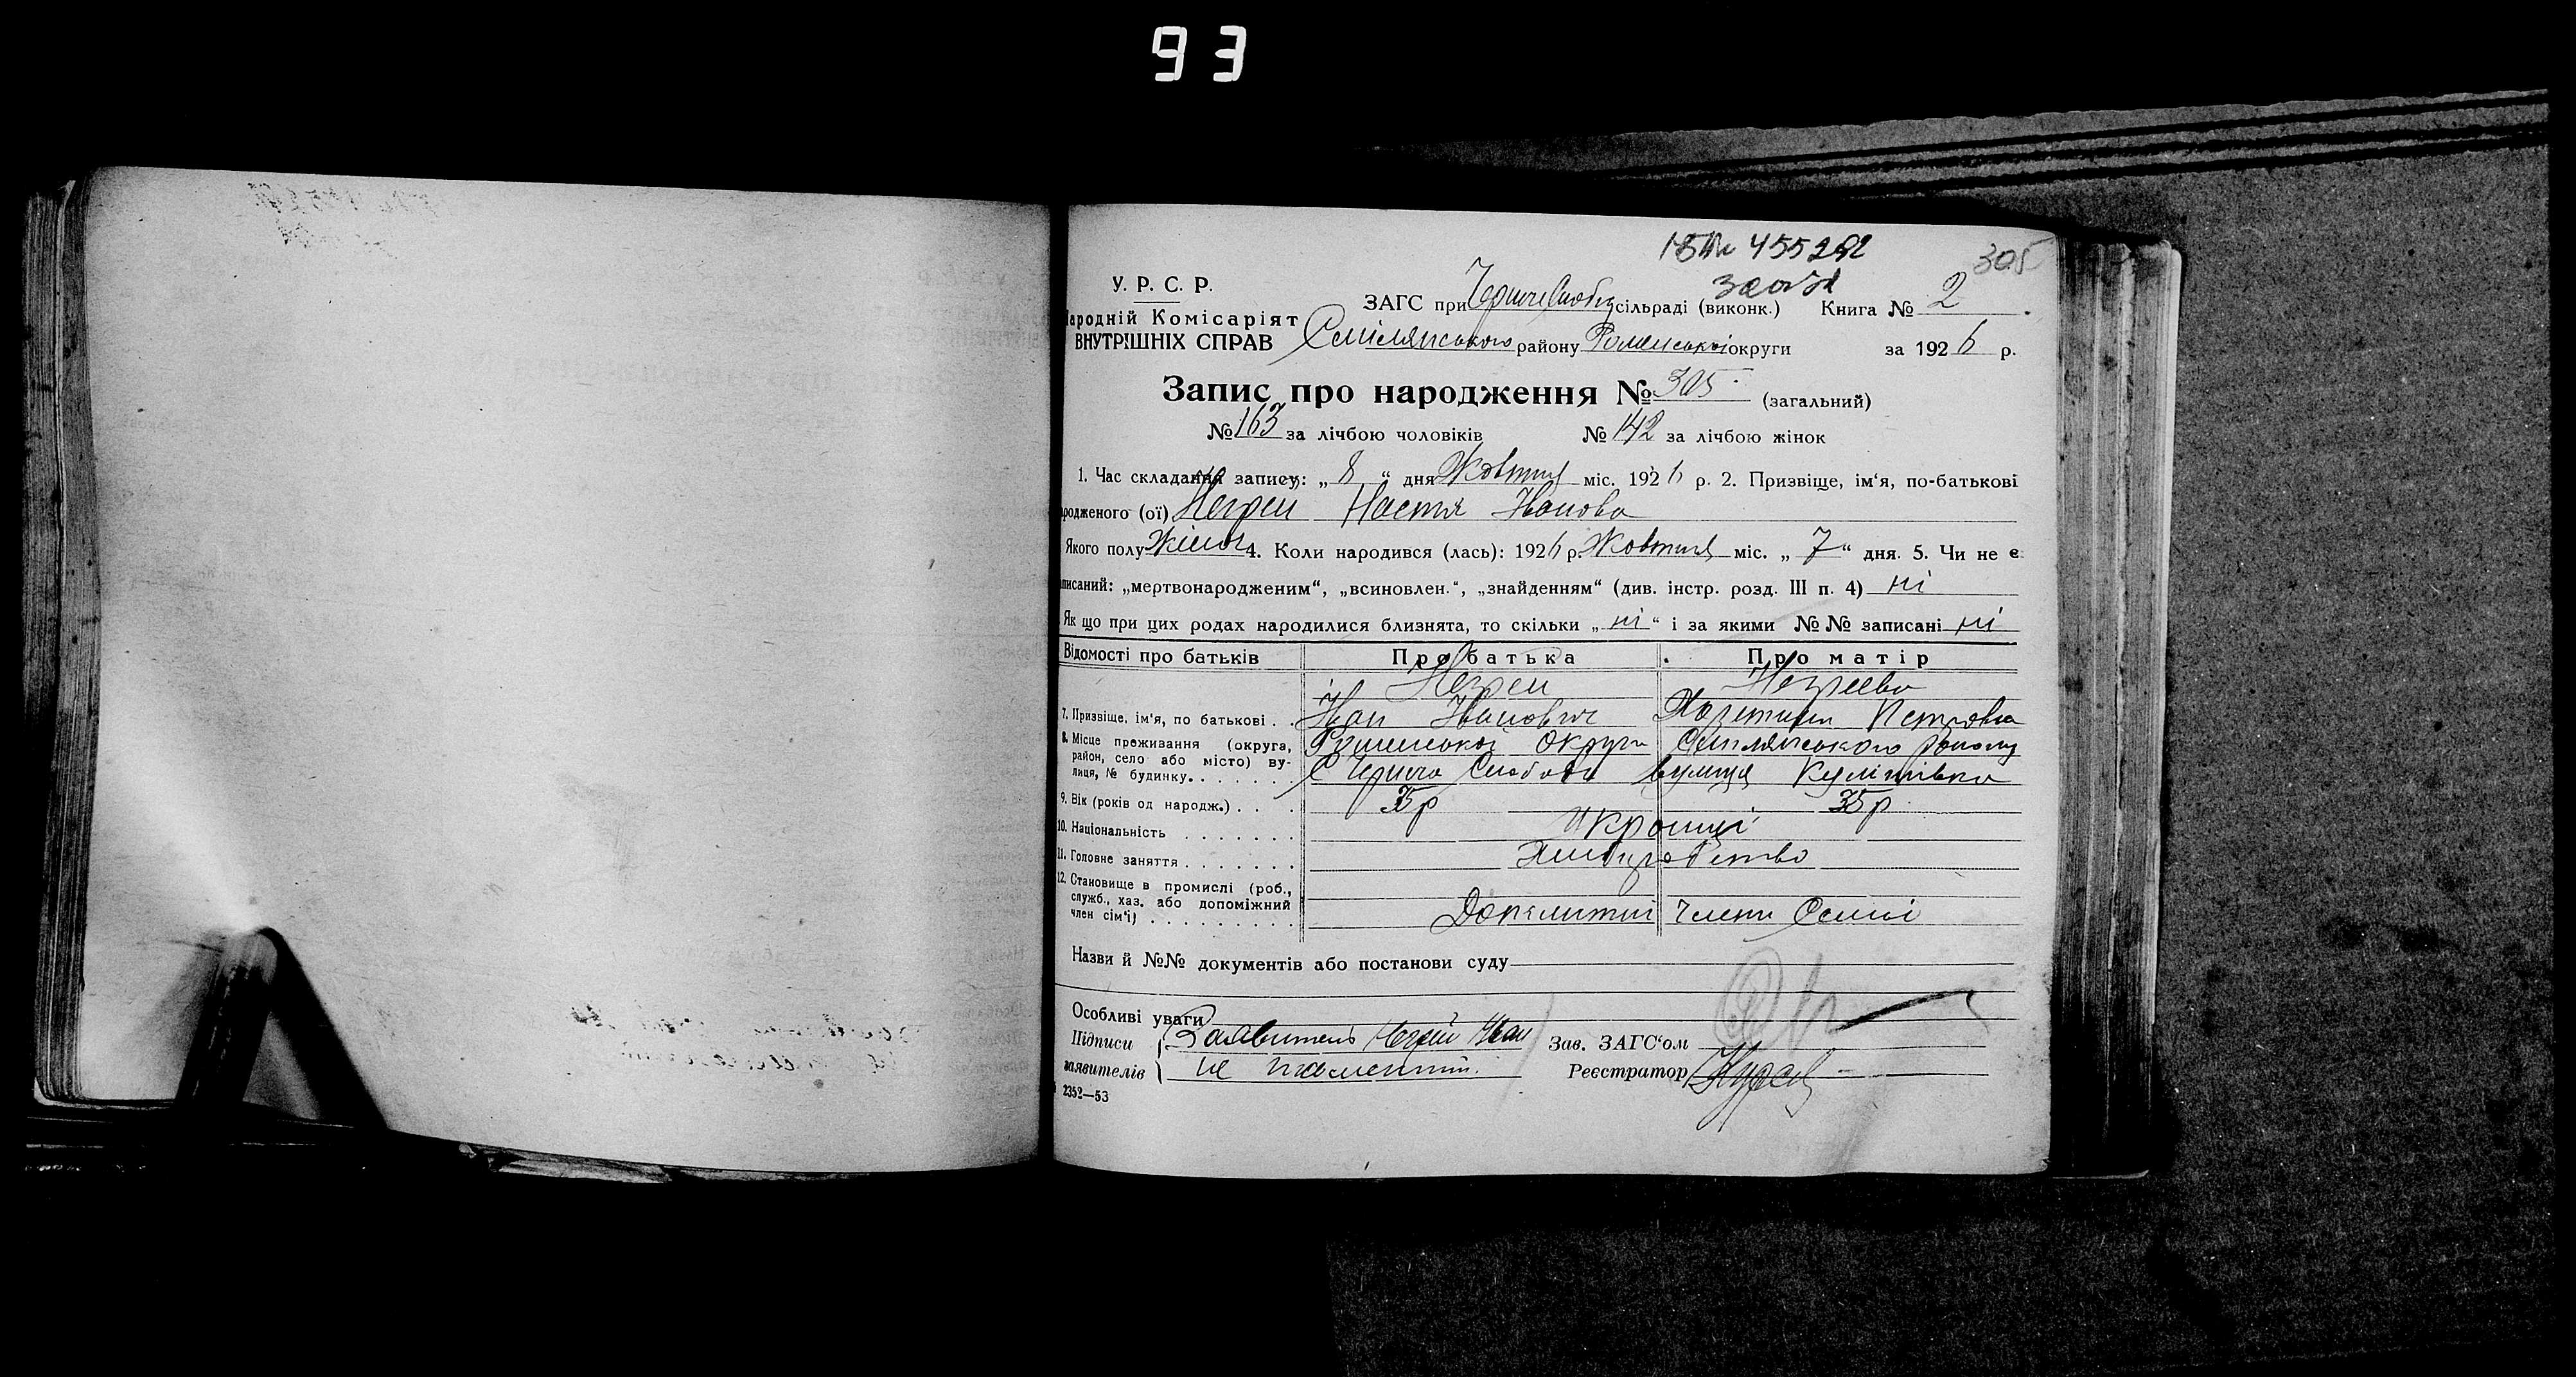 93
455292
305
У. Р. С. Р.
ЗАГС при сільраді (виконк.) Книга № 2
ародній Комісаріят
ВНУТРІШНІХ СПРАВ Смілянського району Роменської округи за 1926 р.
Запис про народження № 305 (загальний)
№ 163 за лічбою чоловіків № 142 за лічбою жінок
1. Час складання запису: „ 8 “ дня Жовтня міс. 1926 р. 2. Призвіще, ім‘я, по-батькові
родженого (ої) Негреи Настя Іванова
Якого полу Жіноч 4. Коли народився (лась): 1926 р. Жовтня міс. „ 7 “ дня. 5. Чи не є
писаний: „мертвонародженим“, „всиновлен.“, „знайденням“ (див. інстр. розд. III п. 4) ні
Як що при цих родах народилися близнята, то скільки „ ні “ і за якими №№ записані ні
Відомості про батьків Про батька Про матір
Негреи Негреева
7. Призвіще, ім‘я, по батькові . . Іван Іванович Петровна
8. Місце преживання (округа, район, село або місто) вулиця, № будинку. Роменської Округи Смілянського Району
С Чернеча Слобода вулиця
9. Вік (років од народж.) . . . 35р 35р
10. Національність . . . . . . . Украинці
11. Головне заняття . . . . . . . Хліборобство
12. Становище в промислі (роб.,
служб., хаз. або допоміжний
член сім‘ї) . . . . . . . . . члени Семьі
Назви й №№ документів або постанови суду
Особливі уваги
Підписи Заявитель Негреи Іван Зав. ЗАГС‘ом
заявителів не Реєстратор
2352—53